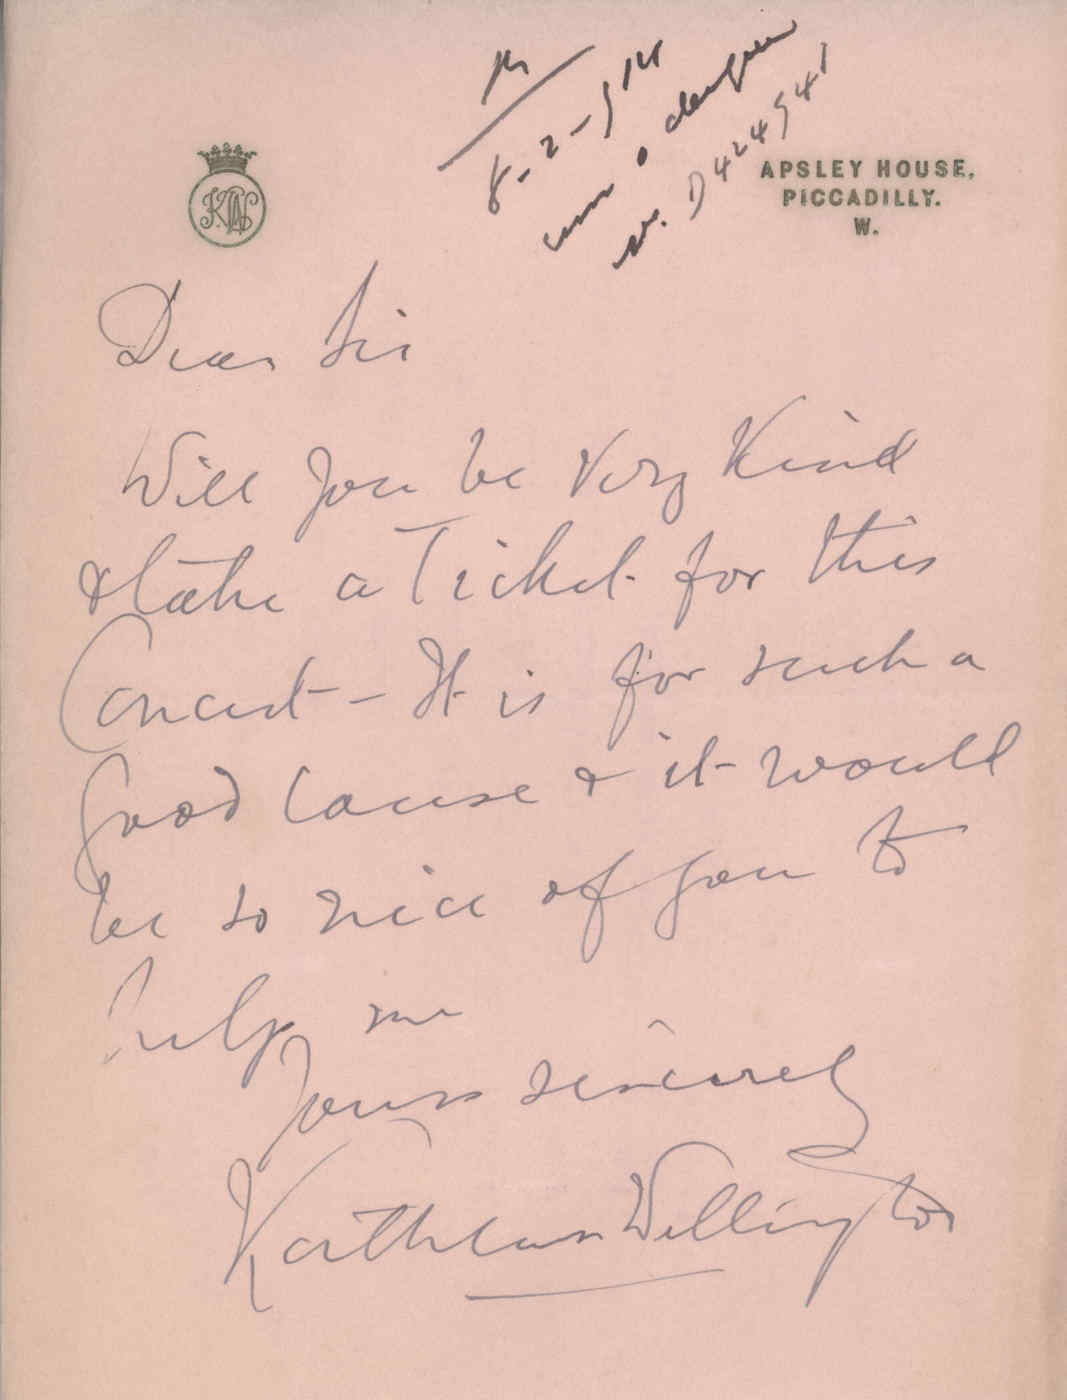 8-2-914
No. D424941
APSLEY HOUSE,
PICCADILLY.
W.
Dear Sir
Will you be very kind
& take a Ticket for this
Concert - It is for such a
good cause & it would
be so nice of you to
help me
Yours sincerely
Kathleen Wellington